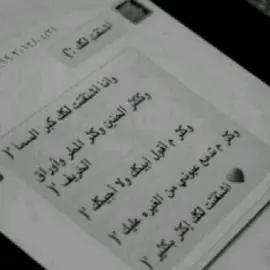 اشتقت لك
وانا اشتقت لك كبر السما
وكثر السنين وكثر المطر وأوراق
الخريف
وكثر م اقول ابيك ولا
وكثر م تدمع عيوني من عليك
اشتقت لك اكثر بكثير